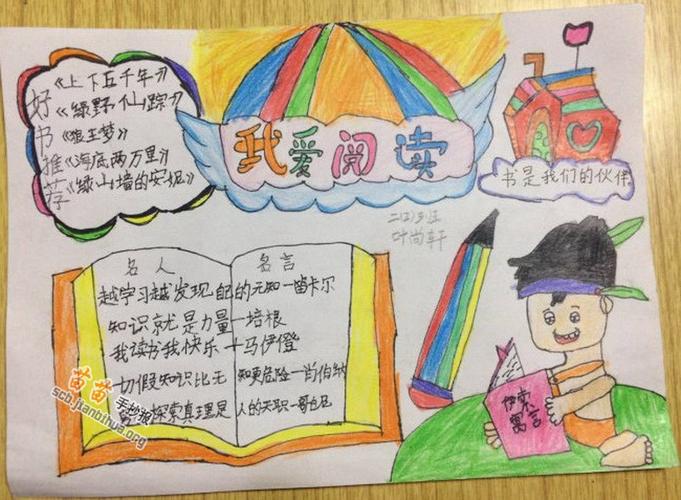 好书推荐
《上下五千年》
《绿野仙踪》
《狼王梦》
《海底两万里》
《绿山墙的安妮》
我爱阅读
书是我们的伙伴
叶尚轩
名人 名言
越学习越发现自己的无知—笛卡尔
知识就是力量—培根
我读书我快乐—马伊橙
一切假知识比无知更危险—肖伯纳
探索真理是人的天职—哥白尼
伊索
寓言
苗苗手抄报
scb.jianbihua.org